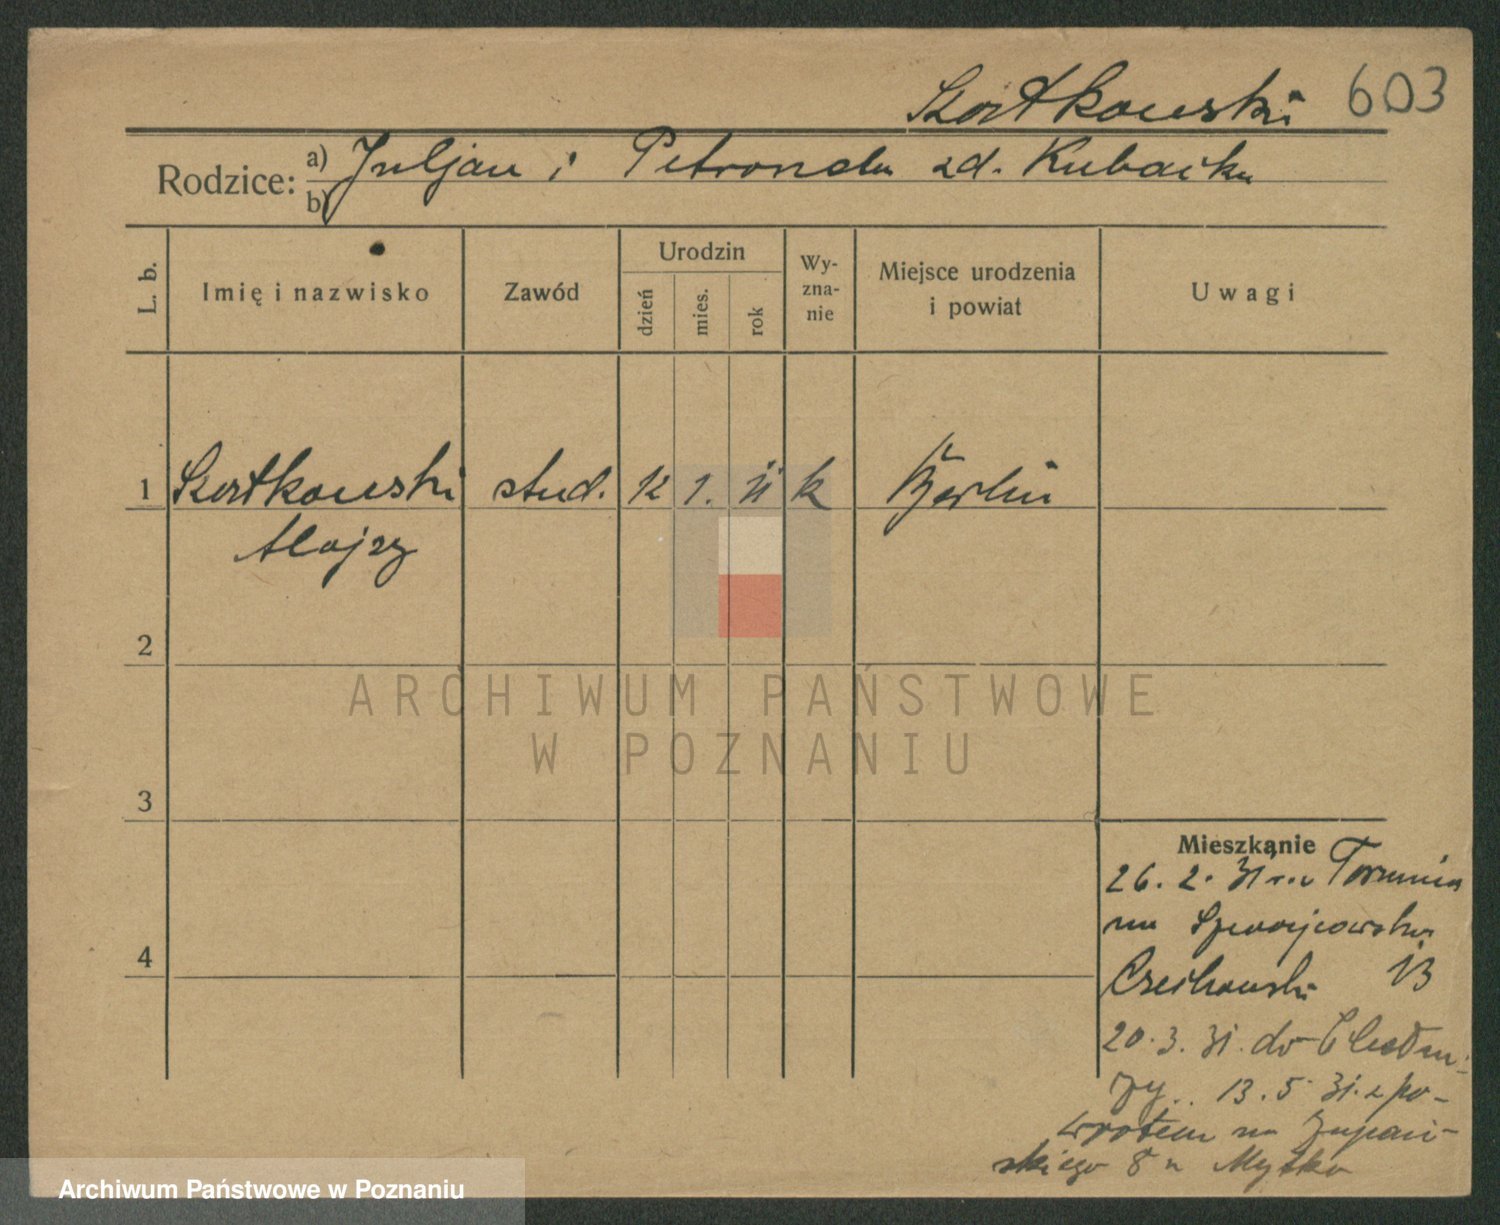 Szortkowski 603
Rodzice: a) Juljan i Petronela zd. Kubacka
b)
L. b. Imię i nazwisko Zawód Urodzin dzień mies. rok Wy-zna-nie Miejsce urodzenia i powiat Uwagi
1 Szortkowski stud. 12 1. 11 k Berlin
Alojzy
2
ARCHIWUM PAŃSTWOWE
W POZNANIU
3
Mieszkanie
26. 2. 31 r. z Torunia
na
4
Czechowski 13
20. 3. 31. do
13. 5. 31. z po-
wrotem na Żupań-
skiego 8 u Myśko
Archiwum Państwowe w Poznaniu